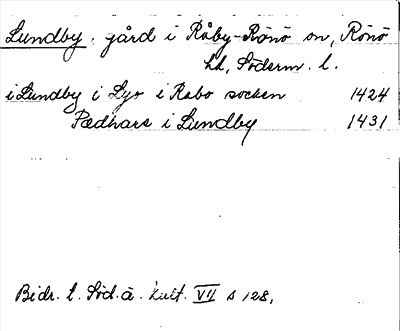 Lundby. gård i Råby-Rönö sn, Rönö
hd, Söderm. l.
i Lundby i Lyo i Rabo socken 1424
Pædhars i Lundby 1431
Bidr. t. Söd. ä. Kult. VII s 128,